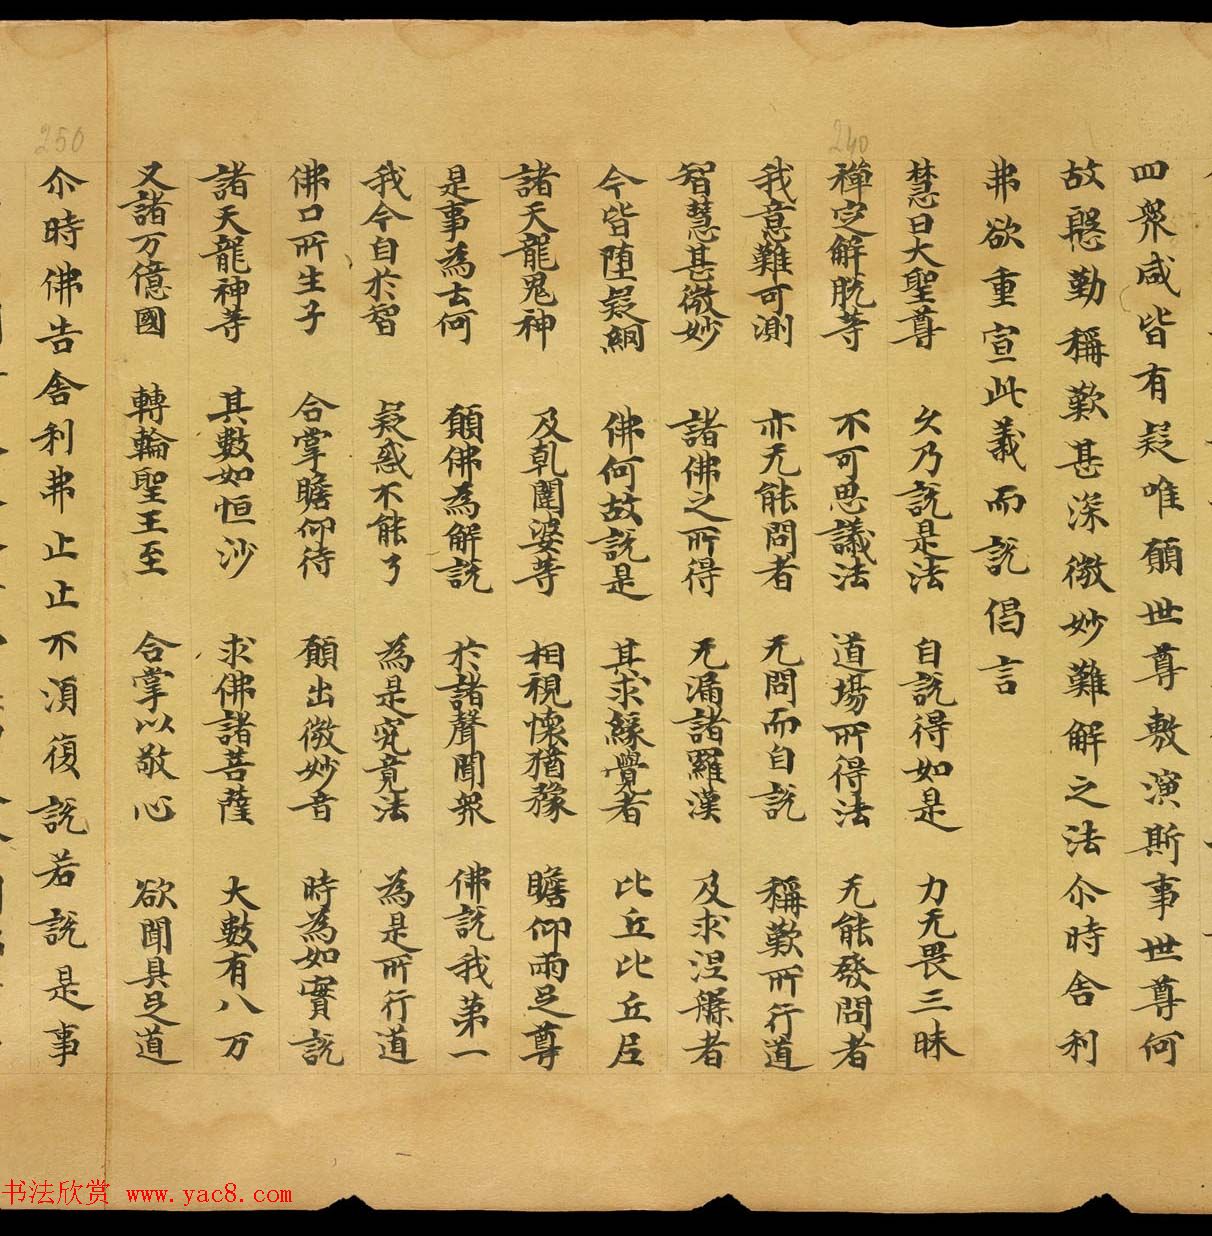 四衆咸皆有疑唯願世尊敷演斯事世尊何
故慇勤稱歎甚深微妙難解之法尒時舍利
弗欲重宣此義而說偈言
慧日大聖尊 久乃說是法 自說得如是 力无畏三昧
禪定解脫等 不可思議法 道場所得法 无能發問者
我意難可測 亦无能問者 无問而自說 稱歎所行道
智慧甚微妙 諸佛之所得 无漏諸羅漢 及求涅槃者
今皆墮疑網 佛何故說是 其求緣覺者 比丘比丘尼
諸天龍鬼神 及乹闥婆等 相視懷猶豫 瞻仰兩足尊
是事為云何 願佛為解說 於諸聲聞衆 佛說我第一
我今自於智 疑惑不能了 為是究竟法 為是所行道
佛口所生子 合掌瞻仰待 願出微妙音 時為如實說
諸天龍神等 其數如恒沙 求佛諸菩薩 大數有八万
又諸万億國 轉輪聖王至 合掌以敬心 欲聞具足道
尒時佛告舍利弗止止不須復說若說是事
240
250
书法欣赏 www.yac8.com